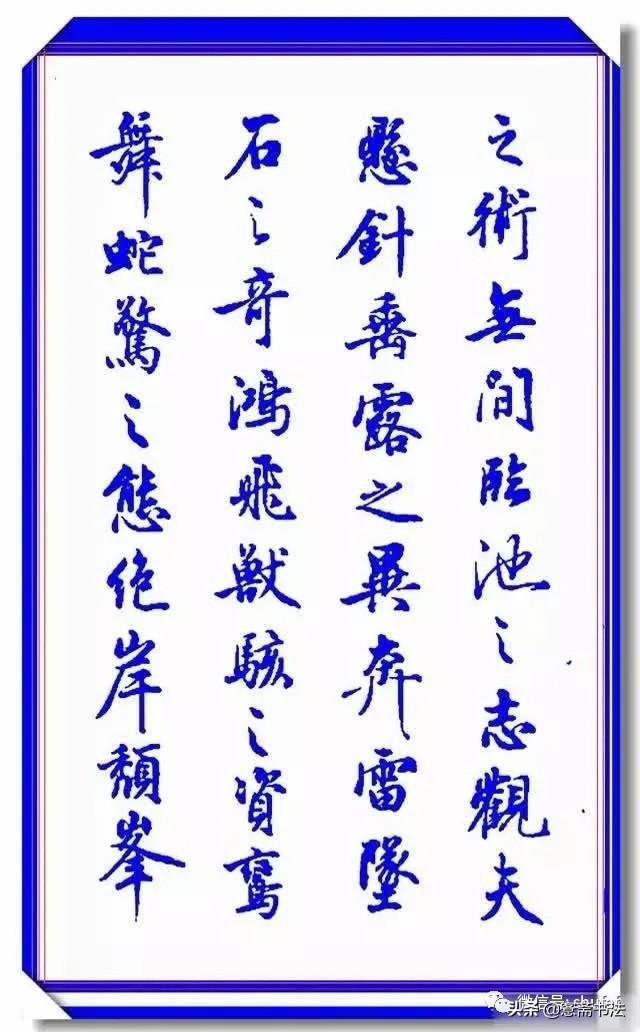 之術無間臨池之志觀夫
懸針垂露之異奔雷墜
石之奇鴻飛獸駭之資鸞
舞蛇驚之態絕岸頹峯
头条@意斋书法